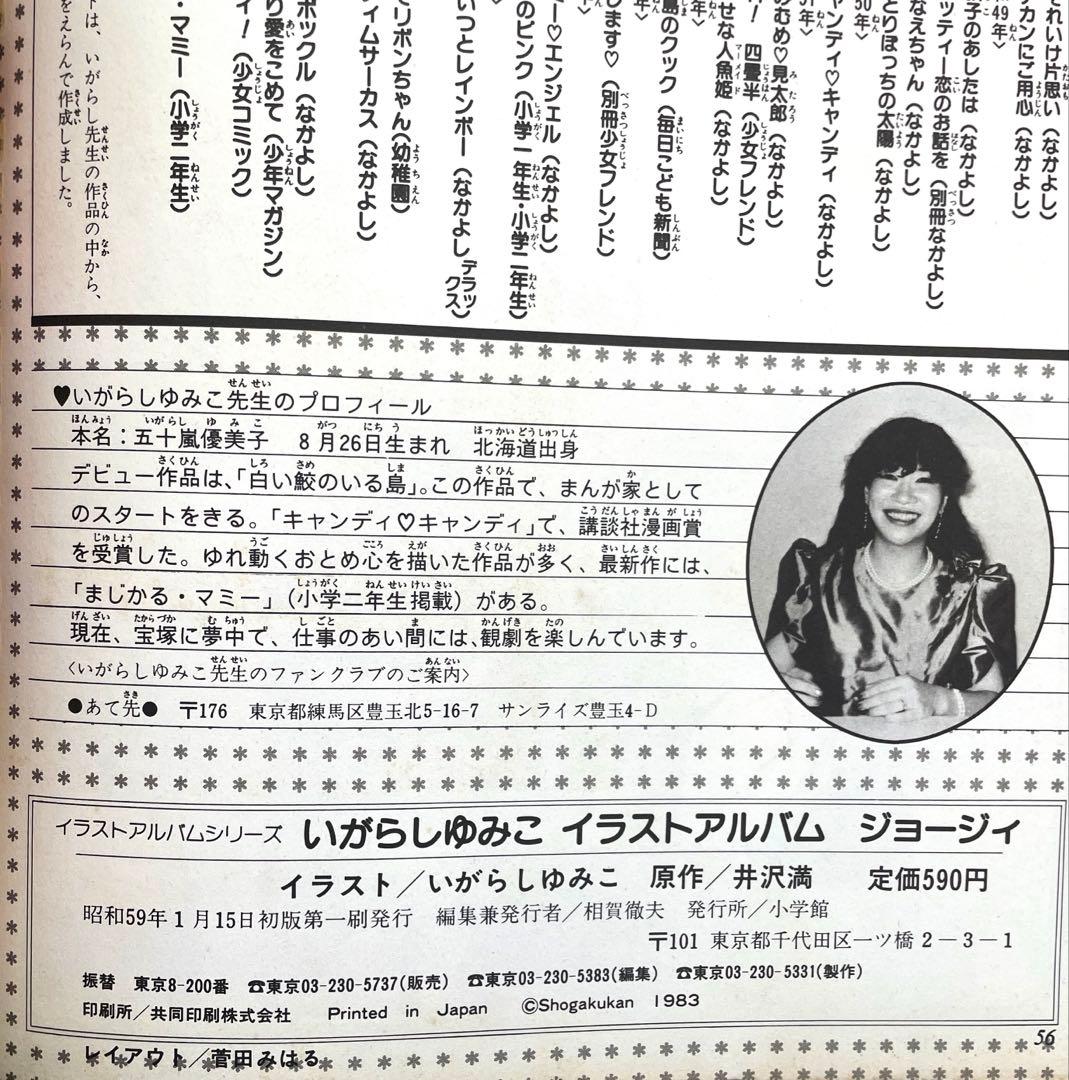 それいけ片思い(なかよし)
チカンにご用心(なかよし)
49年〉
子のあしたは(なかよし)
ッティー恋のお話を(別冊なかよし)
なえちゃん(なかよし)
とりぼっちの太陽(なかよし)
50年〉
キャンディ♡キャンディ(なかよし)
51年〉
むめ♡見太郎(なかよし)
! 四畳半(少女フレンド)
せな人魚姫(なかよし)
年〉
島のクック(毎日こども新聞)
します♡(別冊少女フレンド)
年〉
ー♡エンジェル(なかよし)
のピンク(小学一年生・小学二年生)
〉
いつとレインボー(なかよしデラックス)
モリボンちゃん(幼稚園)
イムサーカス(なかよし)
ポックル(なかよし)
り愛をこめて(少年マガジン)
ィ!(少女コミック)
・マミー(小学二年生)
トは、いがらし先生の作品の中から、
をえらんで作成しました。
♥いがらしゆみこ先生のプロフィール
本名:五十嵐優美子 8月26日生まれ 北海道出身
デビュー作品は、「白い鮫のいる島」。この作品で、まんが家として
のスタートをきる。「キャンディ♡キャンディ」で、講談社漫画賞
を受賞した。ゆれ動くおとめ心を描いた作品が多く、最新作には、
「まじかる・マミー」(小学二年生掲載)がある。
現在、宝塚に夢中で、仕事のあい間には、観劇を楽しんでいます。
〈いがらしゆみこ先生のファンクラブのご案内〉
●あて先● 〒176 東京都練馬区豊玉北5-16-7 サンライズ豊玉4-D
イラストアルバムシリーズ いがらしゆみこ イラストアルバム ジョージィ
イラスト/いがらしゆみこ 原作/井沢満 定価590円
昭和59年1月15日初版第一刷発行 編集兼発行者/相賀徹夫 発行所/小学館
〒101 東京都千代田区一ツ橋2-3-1
振替 東京8-200番 ☎東京03-230-5737(販売) ☎東京03-230-5383(編集) ☎東京03-230-5331(製作)
印刷所/共同印刷株式会社 Printed in Japan ©Shogakukan 1983
レイアウト/菅田みはる
56